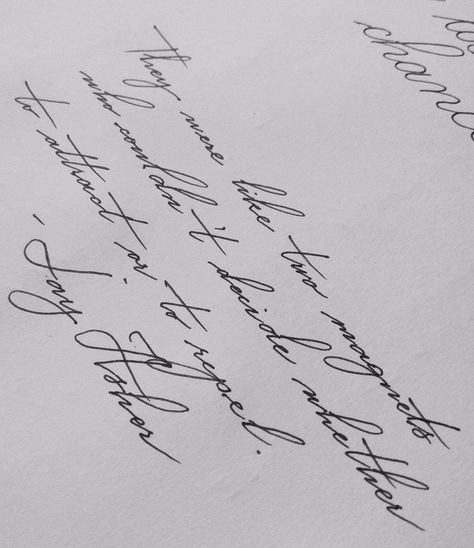 they were like two magnets
who couldn't decide whether
to attract or to repel.
- Jay Asher